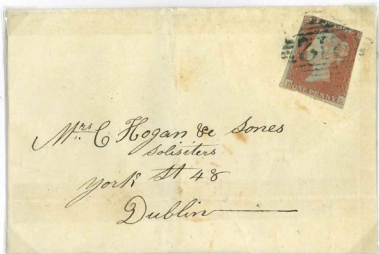 ONE PENNY
Mrs C Hogan & Sones
Soliciters
York St 48
Dublin